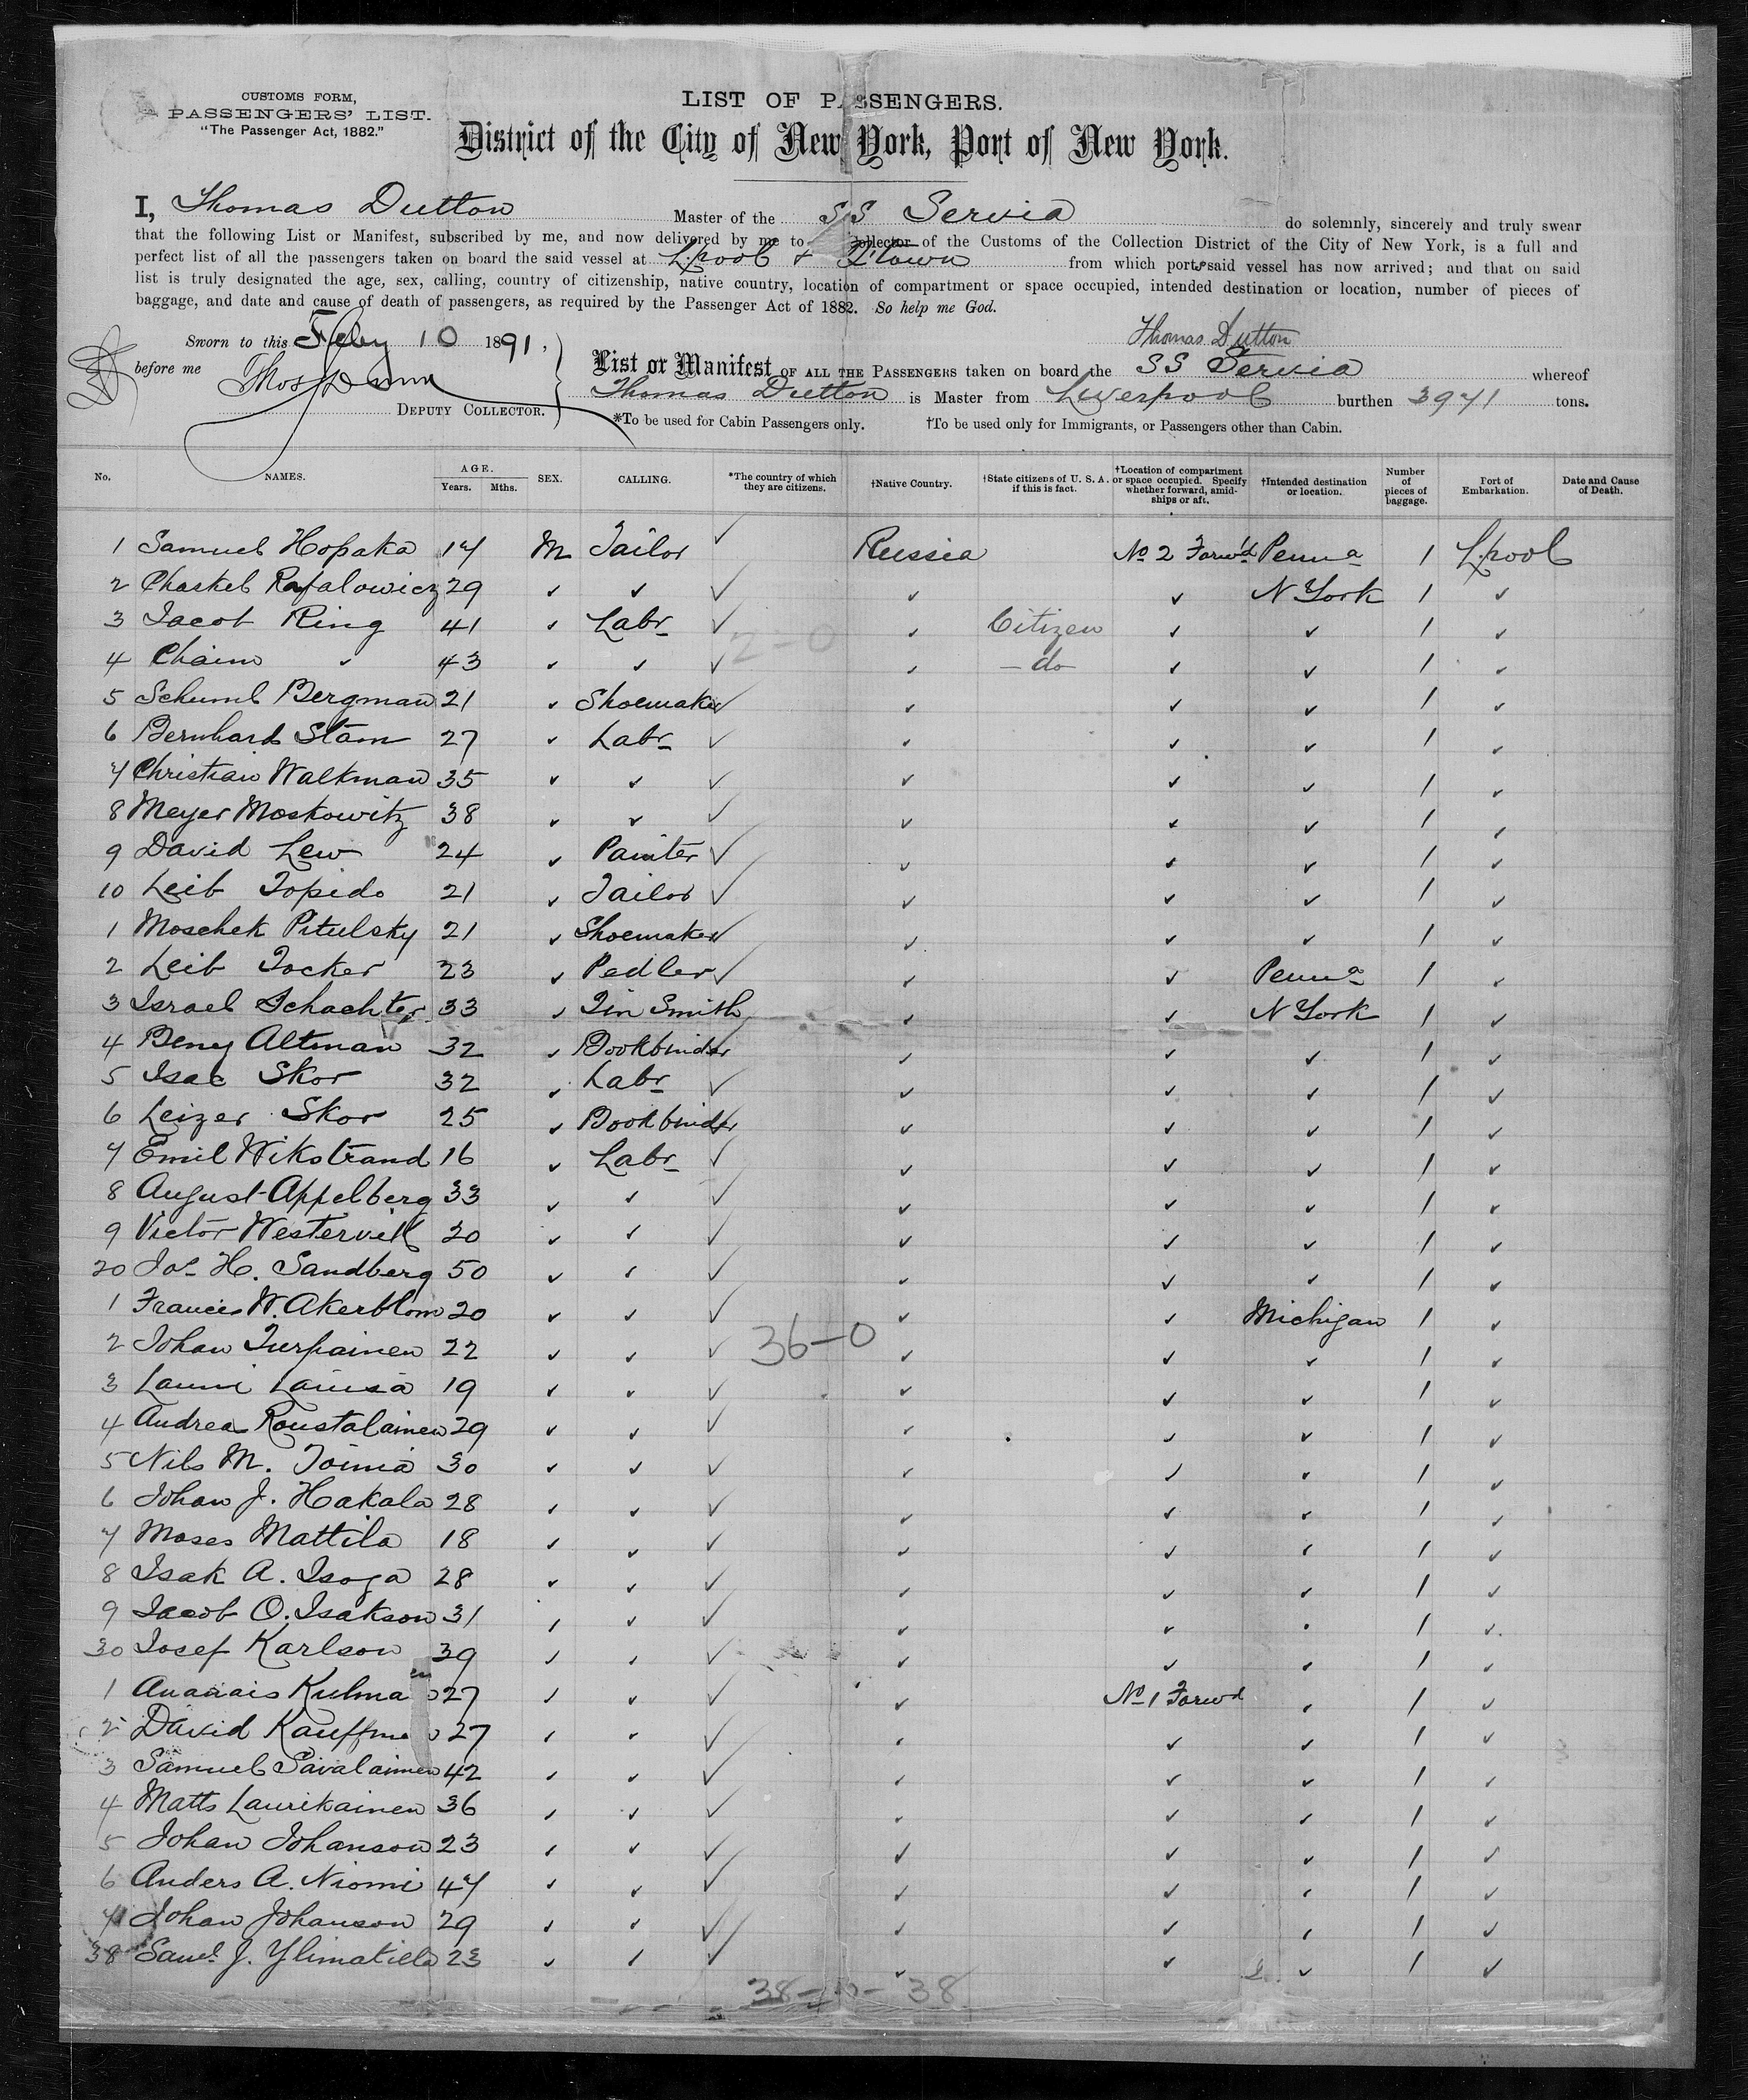 CUSTOMS FORM,
PASSENGERS' LIST.
"The Passenger Act, 1882."
LIST OF PASSENGERS.
District of the City of New York, Port of New York.
I, Thomas Dutton Master of the SS Servia do solemnly, sincerely and truly swear
that the following List or Manifest, subscribed by me, and now delivered by me to Collector of the Customs of the Collection District of the City of New York, is a full and
perfect list of all the passengers taken on board the said vessel at L.pool & from which ports said vessel has now arrived; and that on said
list is truly designated the age, sex, calling, country of citizenship, native country, location of compartment or space occupied, intended destination or location, number of pieces of
baggage, and date and cause of death of passengers, as required by the Passenger Act of 1882. So help me God.
Thomas Dutton
Sworn to this Feby 10 1891,
before me Thos Dunn
DEPUTY COLLECTOR.
List or Manifest OF ALL THE PASSENGERS taken on board the SS Servia whereof
Thomas Dutton is Master from Liverpool burthen 3971 tons.
*To be used for Cabin Passengers only. †To be used only for Immigrants, or Passengers other than Cabin.
No. NAMES. AGE. Years. Mths. SEX. CALLING. *The country of which they are citizens. †Native Country. †State citizens of U. S. A. if this is fact. †Location of compartment or space occupied. Specify whether forward, amidships or aft. †Intended destination or location. Number of pieces of baggage. Port of Embarkation. Date and Cause of Death.
1 Samuel Hopaka 17 M Tailor ✓ Russia No 2 Forwd Penna 1 L.pool
2 Chaskel Rafalowicz 29 ✓ ✓ ✓ ✓ ✓ N York 1 ✓
3 Jacob Ring 41 ✓ Labr ✓ ✓ Citizen ✓ ✓ 1 ✓
2-0
4 Chaim ✓ 43 ✓ ✓ ✓ ✓ - do - ✓ ✓ 1 ✓
5 Schuml Bergman 21 ✓ Shoemaker ✓ ✓ ✓ ✓ 1 ✓
6 Bernhard Stam 27 ✓ Labr ✓ ✓ ✓ ✓ 1 ✓
7 Christian Walkman 35 ✓ ✓ ✓ ✓ ✓ ✓ 1 ✓
8 Meyer Moskowitz 38 ✓ ✓ ✓ ✓ ✓ ✓ 1 ✓
9 David Lew 24 ✓ Painter ✓ ✓ ✓ ✓ 1 ✓
10 Leib Topido 21 ✓ Tailor ✓ ✓ ✓ ✓ 1 ✓
1 Moschek Pitulsky 21 ✓ Shoemaker ✓ ✓ ✓ ✓ 1 ✓
2 Leib Tocker 23 ✓ Pedler ✓ ✓ ✓ Penna 1 ✓
3 Israel Schachter 33 ✓ Tin Smith ✓ ✓ N York 1 ✓
4 Beny Altman 32 ✓ Bookbinder ✓ ✓ ✓ 1 ✓
5 Isac Skor 32 ✓ Labr ✓ ✓ ✓ ✓ 1 ✓
6 Leizer Skor 25 ✓ Bookbinder ✓ ✓ ✓ ✓ 1 ✓
7 Emil Wikstrand 16 ✓ Labr ✓ ✓ ✓ ✓ 1 ✓
8 August Appelberg 33 ✓ ✓ ✓ ✓ ✓ ✓ 1 ✓
9 Victor Westervik 20 ✓ ✓ ✓ ✓ ✓ ✓ 1 ✓
20 Jos H. Sandberg 50 ✓ ✓ ✓ ✓ ✓ ✓ 1 ✓
1 Francis W. Akerblom 20 ✓ ✓ ✓ ✓ ✓ Michigan 1 ✓
36-0
2 Johan Turpainen 22 ✓ ✓ ✓ ✓ ✓ ✓ 1 ✓
3 Lauri 19 ✓ ✓ ✓ ✓ ✓ ✓ 1 ✓
4 Andreas Roustalainen 29 ✓ ✓ ✓ ✓ ✓ ✓ 1 ✓
5 Nils M. Toima 30 ✓ ✓ ✓ ✓ ✓ ✓ 1 ✓
6 Johan J. Hakala 28 ✓ ✓ ✓ ✓ ✓ ✓ 1 ✓
7 Moses Mattila 18 ✓ ✓ ✓ ✓ ✓ ✓ 1 ✓
8 Isak A. Isoga 28 ✓ ✓ ✓ ✓ ✓ ✓ 1 ✓
9 Jacob O. Isakson 31 ✓ ✓ ✓ ✓ ✓ ✓ 1 ✓
30 Josef Karlson 39 ✓ ✓ ✓ ✓ ✓ ✓ 1 ✓
1 Ananais Kulma 27 ✓ ✓ ✓ ✓ No 1 Forwd ✓ 1 ✓
2 David Kauffma 27 ✓ ✓ ✓ ✓ ✓ ✓ 1 ✓
3 Samuel Savalainen 42 ✓ ✓ ✓ ✓ ✓ ✓ 1 ✓
4 Matts Laurikainen 36 ✓ ✓ ✓ ✓ ✓ ✓ 1 ✓
5 Johan Johanson 23 ✓ ✓ ✓ ✓ ✓ ✓ 1 ✓
6 Anders A. Niomi 47 ✓ ✓ ✓ ✓ ✓ ✓ 1 ✓
7 Johan Johanson 29 ✓ ✓ ✓ ✓ ✓ ✓ 1 ✓
38 Saml J. Ylimatilla 23 ✓ ✓ ✓ ✓ ✓ ✓ 1 ✓
38